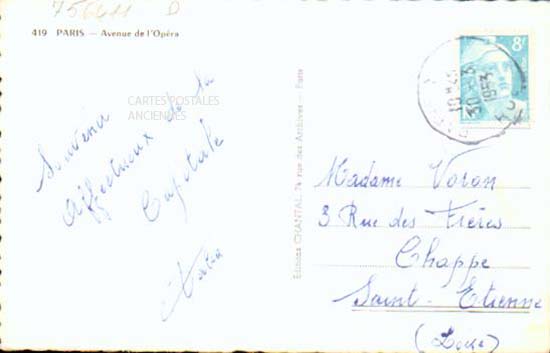 756411 D
419 PARIS — Avenue de l'Opéra
CARTES POSTALES
ANCIENNES
Souvenir
affectueux de la
Capitale
Editions CHANTAL, 74 rue des Archives — Paris
8f
10 H 45
30 - 3
1953
Madame Voran
3 Rue des Frères
Chappe
Saint-Etienne
(Loire)